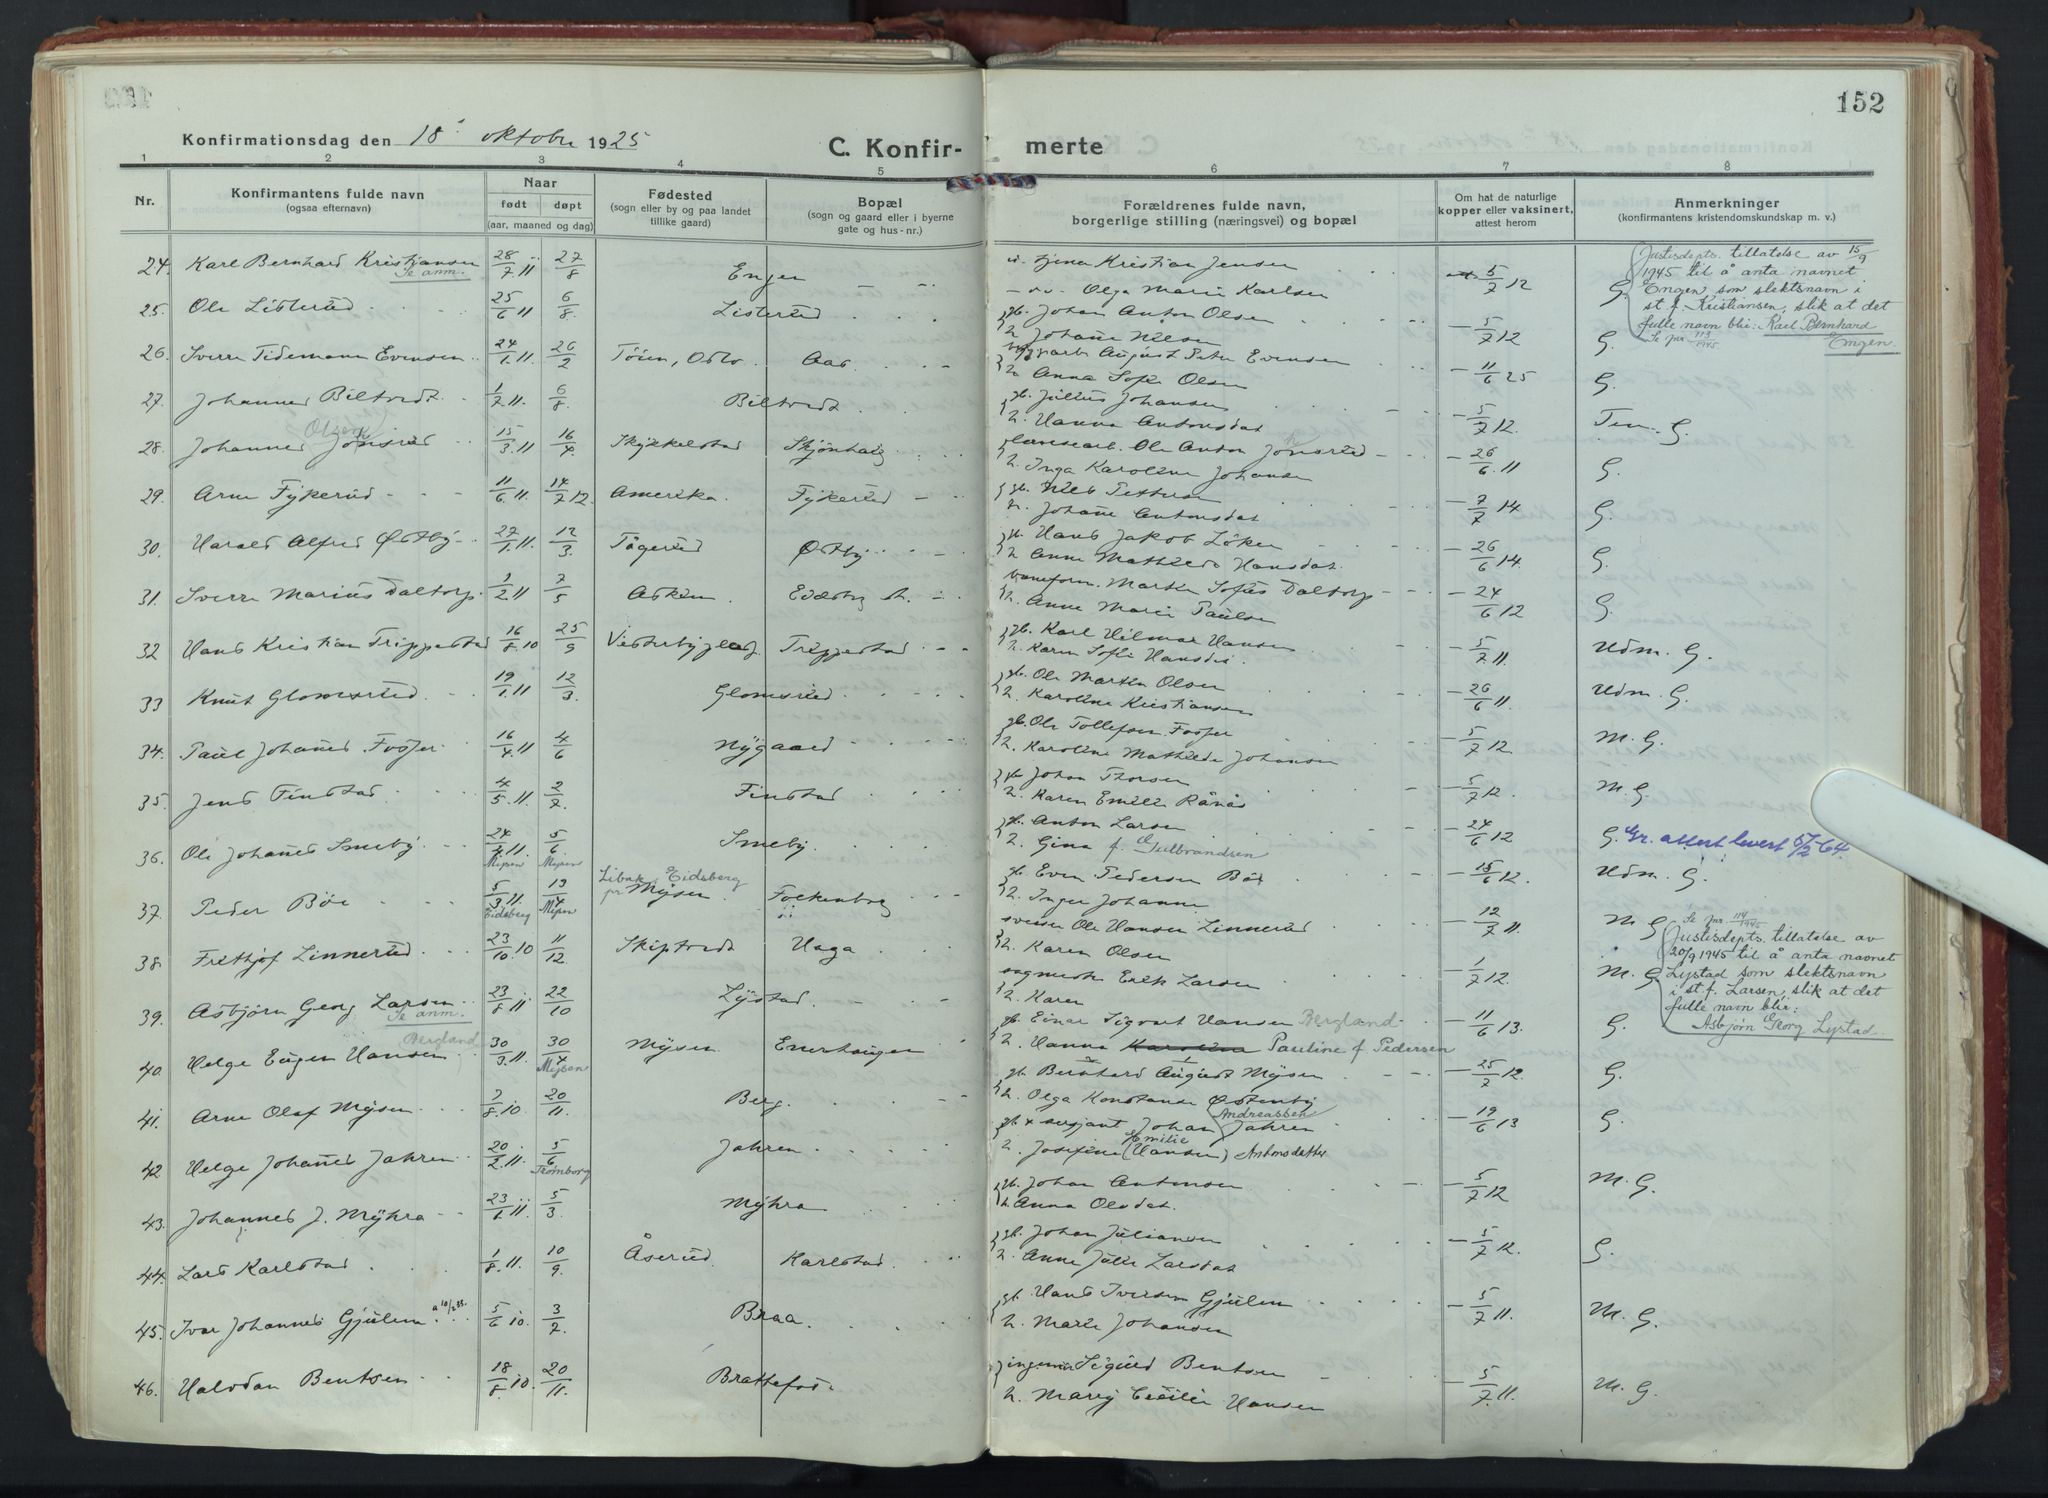 152
Konfirmationsdag den 18' oktober 1925
C. Konfirmerte
1 2 3 4 5 6 7 8
Nr. Konfirmantens fulde navn (ogsaa efternavn) Naar født døpt (aar, maaned og dag) Fødested (sogn eller by og paa landet tillike gaard) Bopæl (sogn og gaard eller i byerne gate og hus-nr.) Forældrenes fulde navn, borgerlige stilling (næringsvei) og bopæl Om hat de naturlige kopper eller vaksinert, attest herom Anmerkninger (konfirmantens kristendomskundskap m. v.)
24. Karl Bernhard Kristiansen 28/7 11 27/8 Engen Kristian Jensen 5/7 12 G.
Se anm. Olga Marie Karlsen
Justisdepts. tillatelse av 15/9
1945 til å anta navnet
Engen som slektsnavn i
st. f. Kristiansen, slik at det
fulle navn blir: Karl Bernhard
Engen.
Se jnr 113/1945
25. Ole Listerud 25/6 11 6/8. Listerud gb. Johan Anton Olsen 5/7 12 G.
h. Johanne Nilsen
26. Sverre Tidemann Evensen 24/1. 11. 26/2 Töien, Oslo. Aas August Peter Evensen 11/6 25 G.
h. Anna Sofie Olsen
27. Johannes Biltvedt. 1/7 11. 6/8. Biltvedt. gb. Julius Johansen 5/7 12. Tem. G.
h. Hanna Antonsdat
28. Johannes Jonsrud 15/3. 11 16/4. Skjönhaug Ole Anton Jonsrud 26/6. 11 G.
Olsen h. Inga Karoline Johansen
29. Arne Fykerud 11/6 11. 14/7 12. Amerika. Fykerud gb. Nils Pettersen 7/7 14 G.
h. Johanne Antonsdat
30. Harald Alfred Østby 27/1. 11. 12/3. Tögerud Østby gb. Hans Jakob Löken 26/6 14. G.
h. Anne Mathilde Hansdat.
31. Sverre Marius Daltorp. 1/2 11 7/5 Askim. Martin Sofus Daltorp 24/6 12 G.
h. Anne Marie Paulsen
32 Hans Kristian Trippestad 16/8. 10 25/9 Vesterbyplads Trippestad gb. Karl Hilmar Hansen 5/7 11. Udm. G.
h. Karen Sofie Hansdt.
33 Knut Glomsrud. 19/1. 11 12/3. Glomsrud gb. Ole Martin Olsen 26/6 11. Udm. G.
h. Karoline Kristiansen
34. Paul Johannes Fosser 16/4. 11 4/6 Nygaard gb. Ole Tollefsen Fosser 5/7 12. M. G.
h. Karoline Mathilde Johansen
35. Jens Finstad 4/5. 11. 2/7. Finstad gb. Johan Thorsen 5/7 12. M. G.
h. Karen Emilie Rånås
36. Ole Johannes Smeby. 24/4. 11. 5/6. Smeby. gb. Anton Larsen 24/6 12 G. Gr. attest levert 5/2 64.
Mysen Mysen h. Gina f. Gulbrandsen
37. Peder Böe 5/3 11. 19/4 Mysen. Folkenborg gb. Even Pedersen Böe 15/6 12. Udm. G.
Eidsberg Mysen Eidsberg h. Inger Johanne
38. Frithjof Linnerud. 23/10. 10 11/12 Skiptvedt Haga Ole Hansen Linnerud 12/7 11. M. G
h. Karen Olsen
Se jnr. 114/1945
39. Asbjörn Georg Larsen 23/8 11 22/10 Lystad Erik Larsen 1/7 12. M. G
Se anm. h. Karen
Justisdepts. tillatelse av
20/9 1945 til å anta navnet
Lystad som slektsnavn
i st. f. Larsen, slik at det
fulle navn blir:
Asbjørn Georg Lystad
40. Helge Eugen Hansen 30/3. 11. 30/4 Mysen Enerhaugen gb. Einar Sigvart Hansen Bergland 11/6 13. G.
Bergland Mysen h. Hanna Karoline Pauline f Pedersen
41. Arne Olaf Mysen 7/8. 10 20/11. Berg. gb. Bernhard August Mysen 25/7 12. G.
h. Olga Konstanse Østenby
42 Helge Johannes Jahren 20/2. 11. 5/6 Jahren gb. x sersjant Johan Jahren 19/6 13 G.
Trømborg Andreassen h. Josefine Emilie (Hansen) Antonsdatter
43. Johannes J. Myhra 23/1. 11. 5/3. Myhra gb. Johan Antonsen 5/7 12 M. G.
h. Anna Olsdat.
44. Lars Karlstad 1/8. 11. 10/9. Åserud. Karlstad gb. Johan Juliansen 5/7 12. G.
h. Anne Julie Larsdat
45. Ivar Johannes Gjulem a 10/2 35. 5/6 10. 3/7. Braa gb. Hans Iversen Gjulem 5/7 11. M. G.
h. Marie Johansen
46. Halvdan Bentsen 18/8. 10. 20/11. Brattefos Sigurd Bentsen 5/7. 11. M. G.
h. Mary Cecilie Hansen